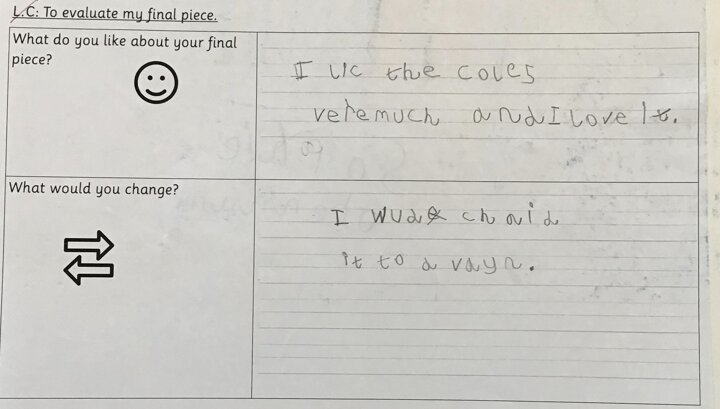 L.C: To evaluate my final piece.
What do you like about your final
piece?
I lic the coles
veremuch andI love it.
What would you change?
I wud chaid
it to a vayn.